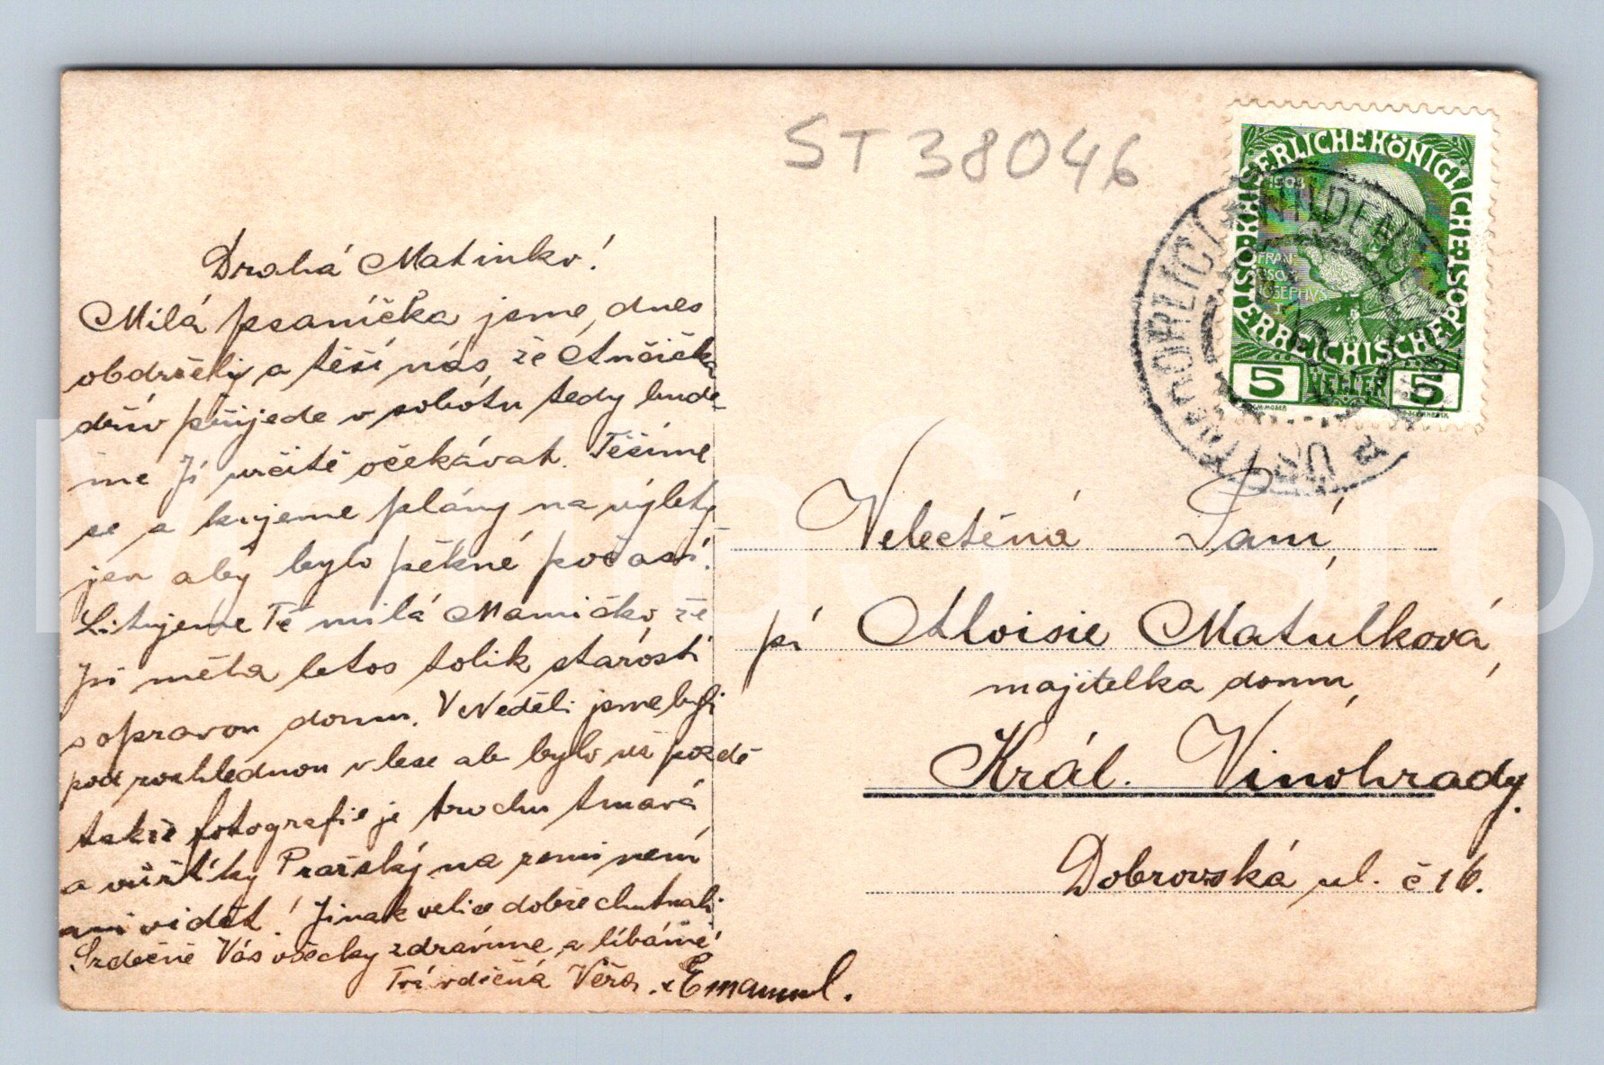 ST 38046
Drahá Matinko!
Milá psaníčka jsme dnes
obdrželi, a těší nás, že Ančička
dřív přijede v sobótu tedy bude-
me Jí určitě očekávat. Těšíme
se a kujeme plány na výlety
jen aby bylo pěkné počasí.
Litujeme Tě milá Mamičko, že
jsi měla letos tolik starostí
s opravou domu. V Neděli jsme byli
pod rozhlednou v lese ale bylo už pozdě
takže fotografie je trochu tmavá
a vuřtíky Pražský na zemi není
ani vidět! Jinak velice dobře chutnali.
Srdečně Vás všecky zdravíme a líbáme
Tvá vděčná Věra. a Emanuel.
KAISERLICHE KÖNIGLICHE
ÖSTERREICHISCHE POST
1908
FRAN
JOSEPHVS
5 HELLER 5
Velectěná Paní,
pí Aloisie Matulková,
majitelka domu,
Král. Vinohrady.
Dobrovská ul. č 16.